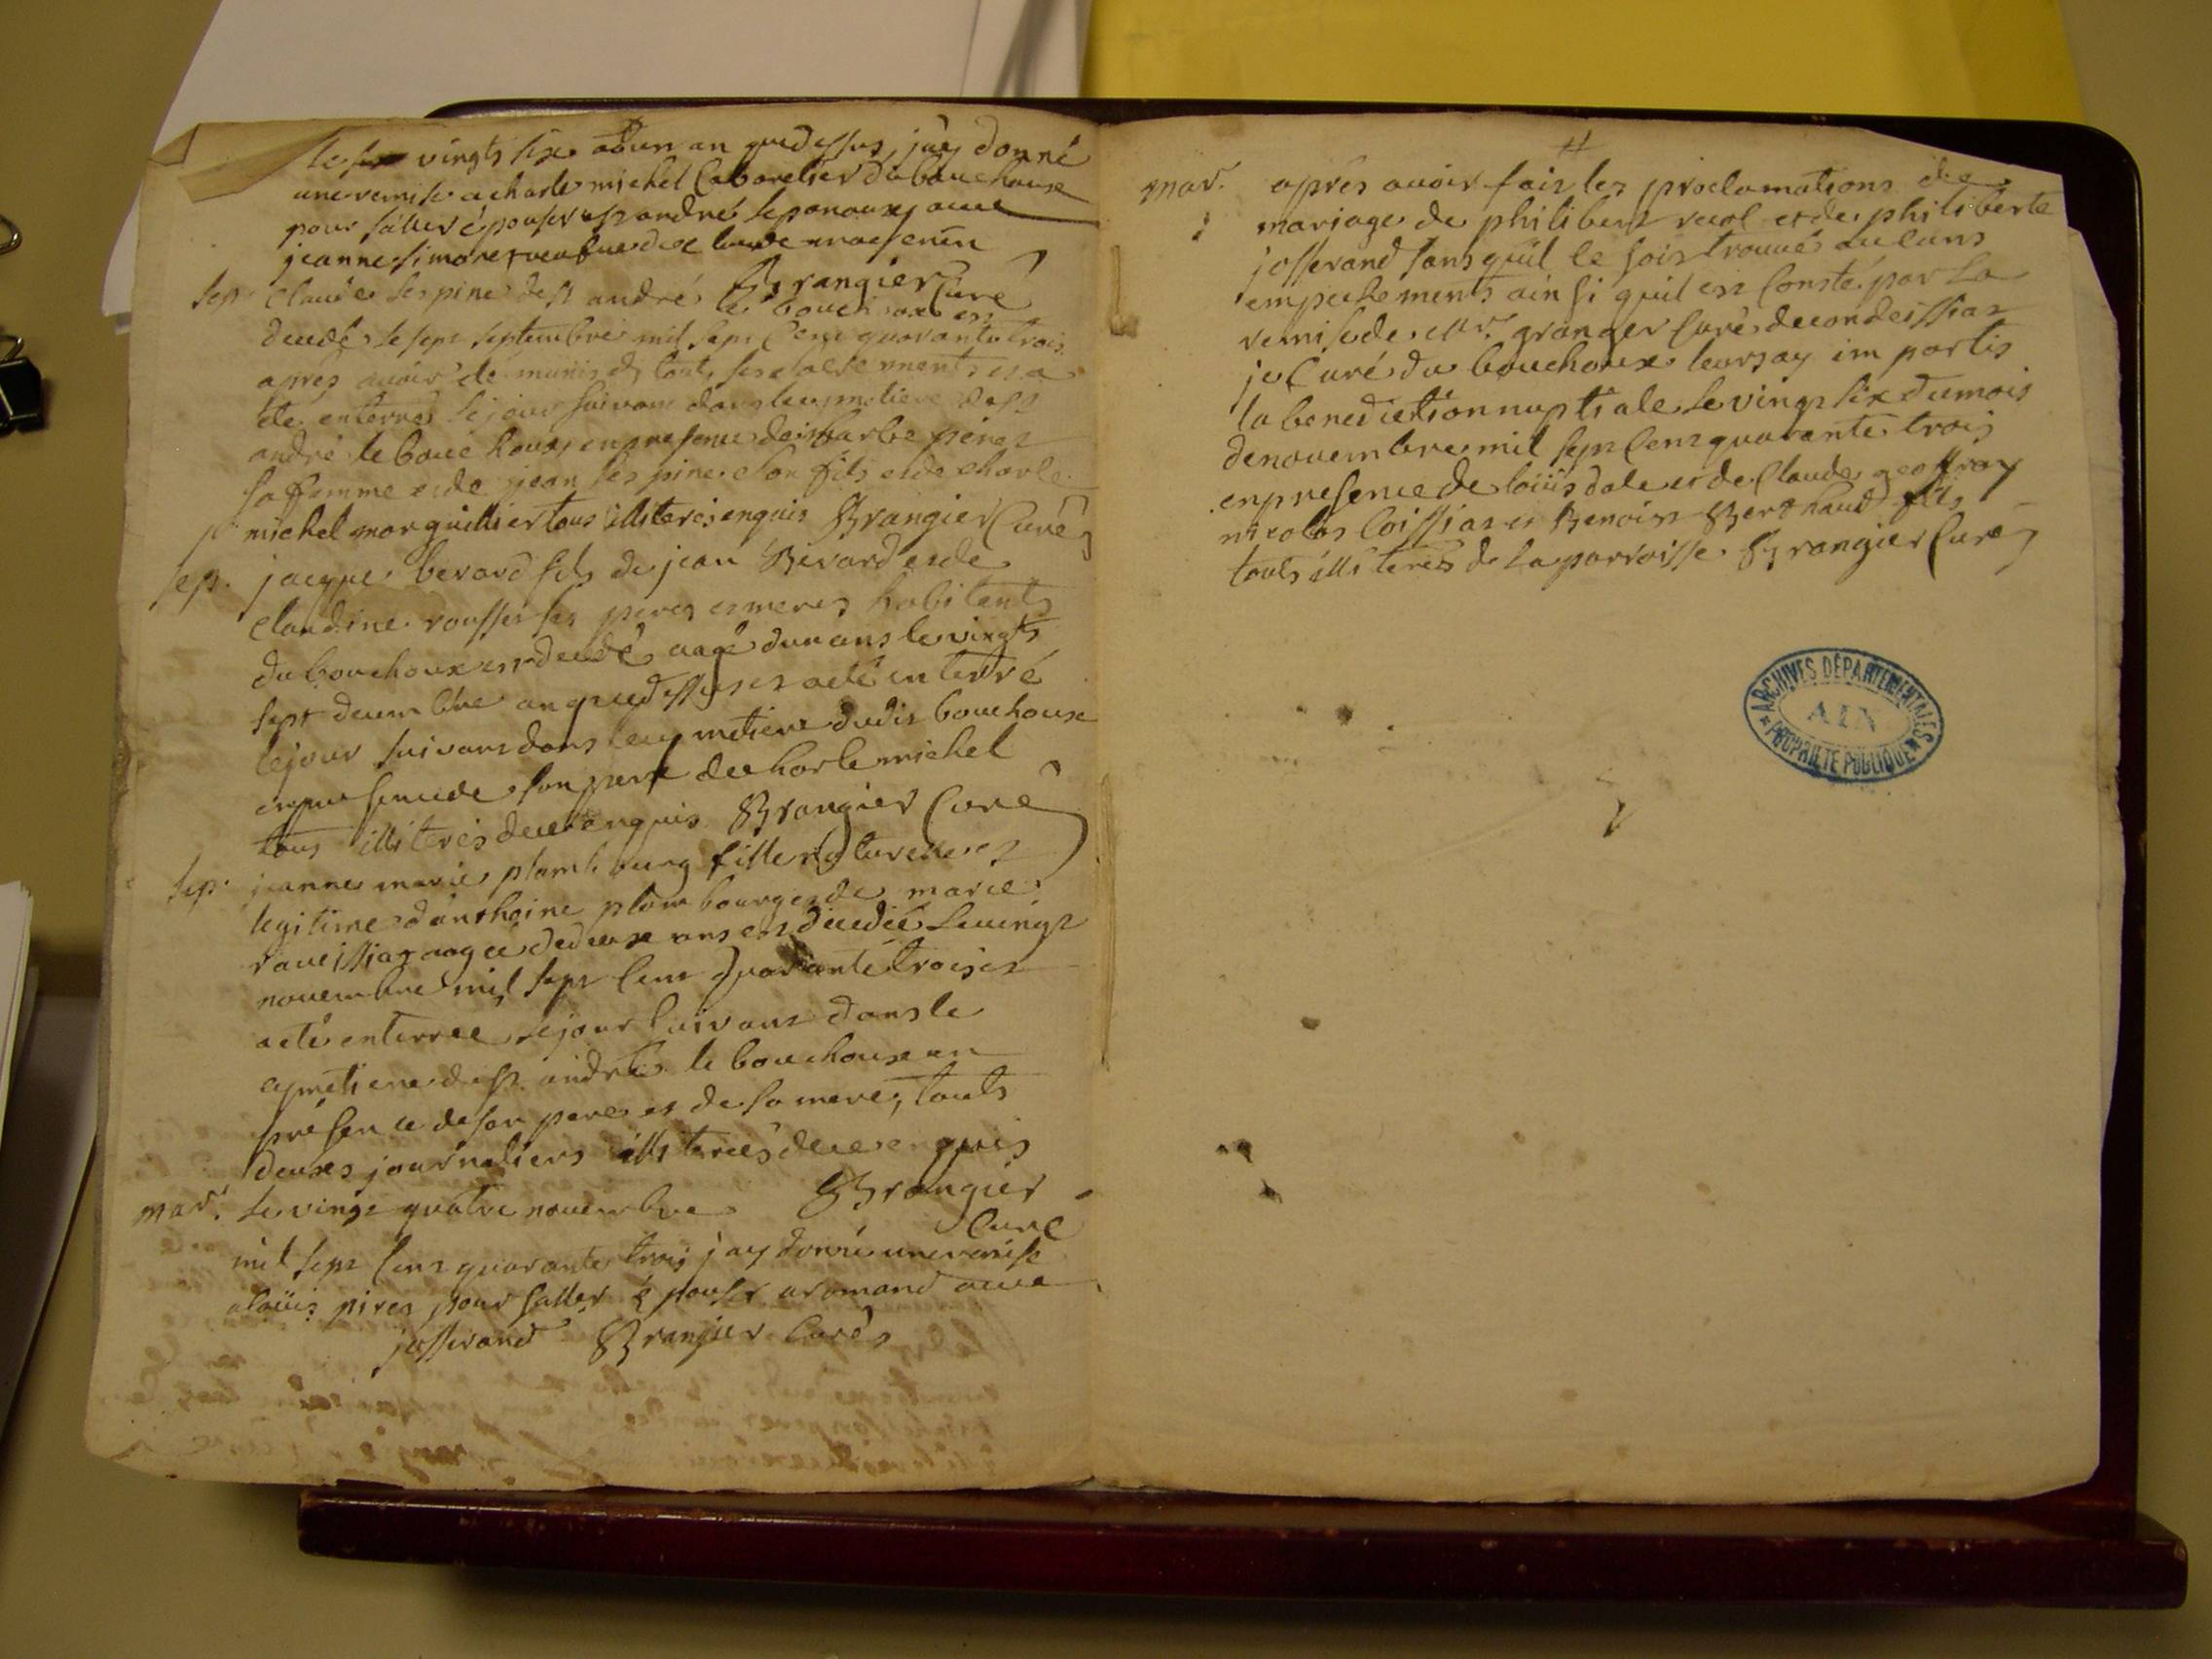 vingts six aoun an que dessus, jay donné
une remise a charle michel Cabaretier du bouchoux
pour saller épouser a st andré le panoux, avec
jeanne simoret veufve de claude
Brangier Curé
sep. Claude lespine de st andré le bouchoux est
decedé le sept septembre mil sept cent quarante trois
apres avoir été munis de touts ses sacrements et a
été enterré le jour suivant dans le cymetiere de st
andré le bouchoux, en presence de pires
sa femme et de jean lespine son fils et de charle
michel marguillier tous illiterés enquis Brangier Curé
sep. jacque berard fils de jean Berard et de
Claudine rousset ses peres et meres habitants
du bouchoux est decedé aagé dun ans le vingts
sept decembre an que dessus et a eté enterré
le jour suivant dans le cymetiere dudit bouchoux
en presence de son pere de charle michel
tous illiterés de ce enquis Brangier Curé
sep. jeanne marie plambourg fille naturelle et
legitime danthoine plambourg et de marie
raveissiat aagée de deux ans est decedée le vingt
novembre mil sept cent quarante trois et
a eté enterrée le jour suivant dans le
cymetiere de st andré le bouchoux en
présence de son pere et de sa mere, touts
deuxes journaliers illiterés de ce enquis
Brangier
Curé
mar. Le vingt quatre novembre
mil sept cent quarante trois jay donné une remise
a loüis pires pour saller épouser a romand avec
josserand Brangier Curé
mar. après avoir fait les proclamations de
mariage de philibert reol et de philiberte
josserand sans quil se soit trouvé aucuns
empechements ainsi quil est Consté par la
remise de Mr. granger Curé de condeissiat
je Curé du bouchoux leurs ay impartis
la benediction nuptiale le vingt six du mois
de novembre mil sept cent quarante trois
en presence de loüis dale et de Claude geoffray
nicolas Coissiat et Benoist Berthaud
touts illiterés de la parroisse Brangier Curé
ARCHIVES DÉPARTEMENTALES
AIN
PROPRIÉTÉ PUBLIQUE